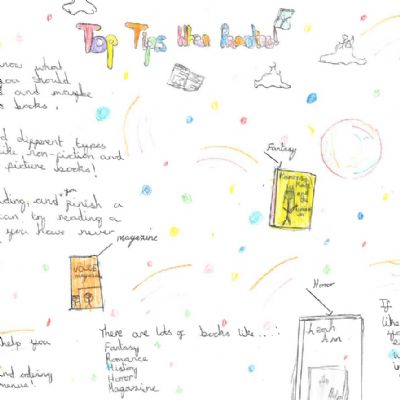 Top Tips When Reading!
know what
you should
and maybe
books!
different types
like non-fiction and
picture books!
Fantasy
reading, and you finish a
can try reading a
you have never
magazine
VOICE
magazine
Horror
There are lots of books like...:
Fantasy
Romance
History
Horror
Magazine
Leah
Ann
If
like
help you
and ordering
menus!